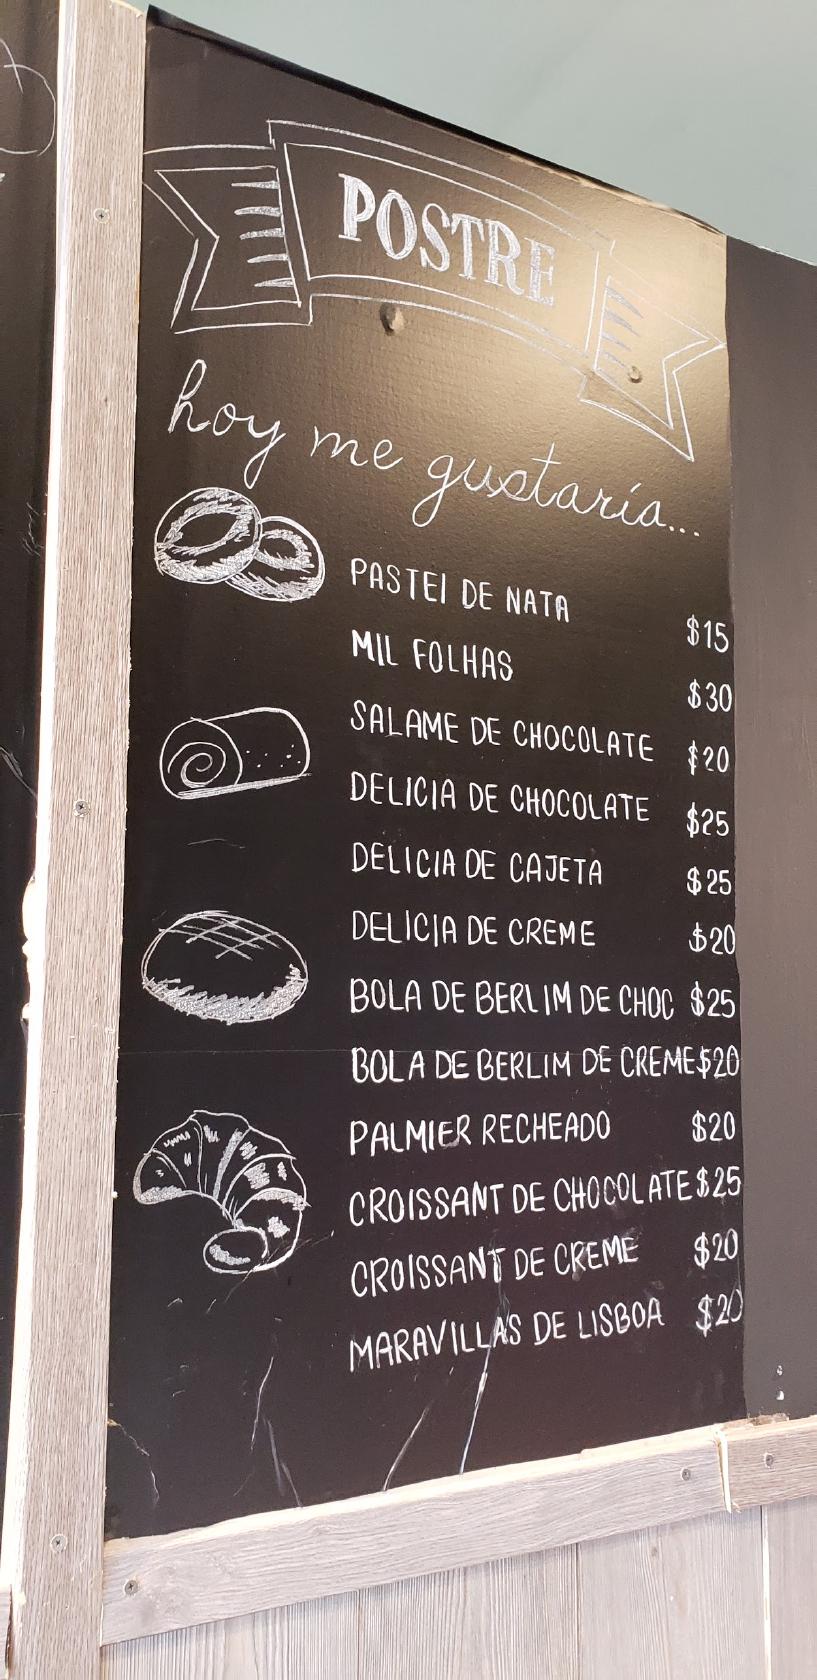 POSTRE
hoy me gustaría...
PASTEI DE NATA $15
MIL FOLHAS $30
SALAME DE CHOCOLATE $20
DELICIA DE CHOCOLATE $25
DELICIA DE CAJETA $25
DELICIA DE CREME $20
BOLA DE BERLIM DE CHOC $25
BOLA DE BERLIM DE CREME $20
PALMIER RECHEADO $20
CROISSANT DE CHOCOLATE $25
CROISSANT DE CREME $20
MARAVILLAS DE LISBOA $20